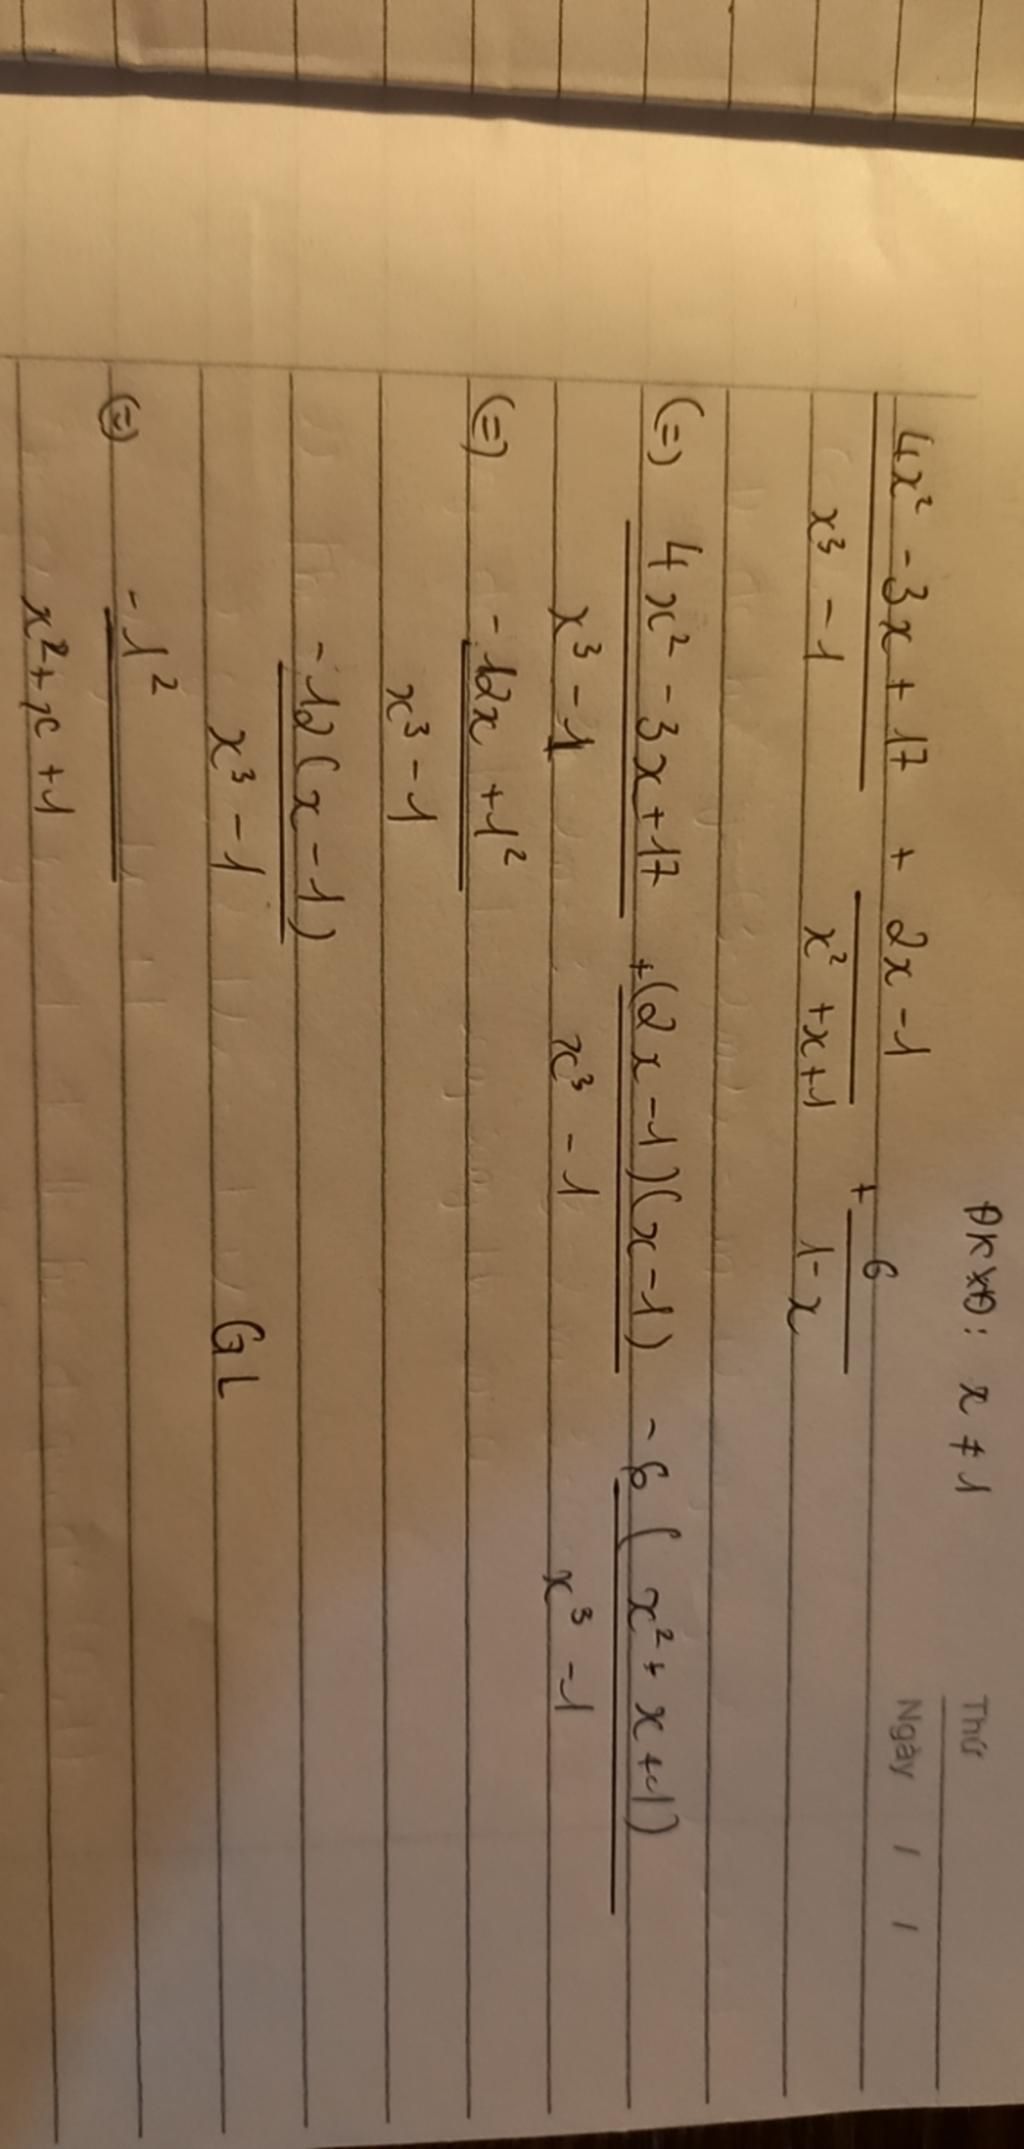 Thứ
Ngày / /
ĐKXĐ: x ≠ 1
4x² - 3x + 17 + 2x - 1 + 6
x³ - 1 x² + x + 1 1 - x
(=) 4x² - 3x + 17 + (2x - 1)(x - 1) - 6(x² + x + 1)
x³ - 1 x³ - 1 x³ - 1
(=) - 12x + 1²
x³ - 1
- 12(x - 1)
x³ - 1 GL
(=) - 1²
x² + x + 1